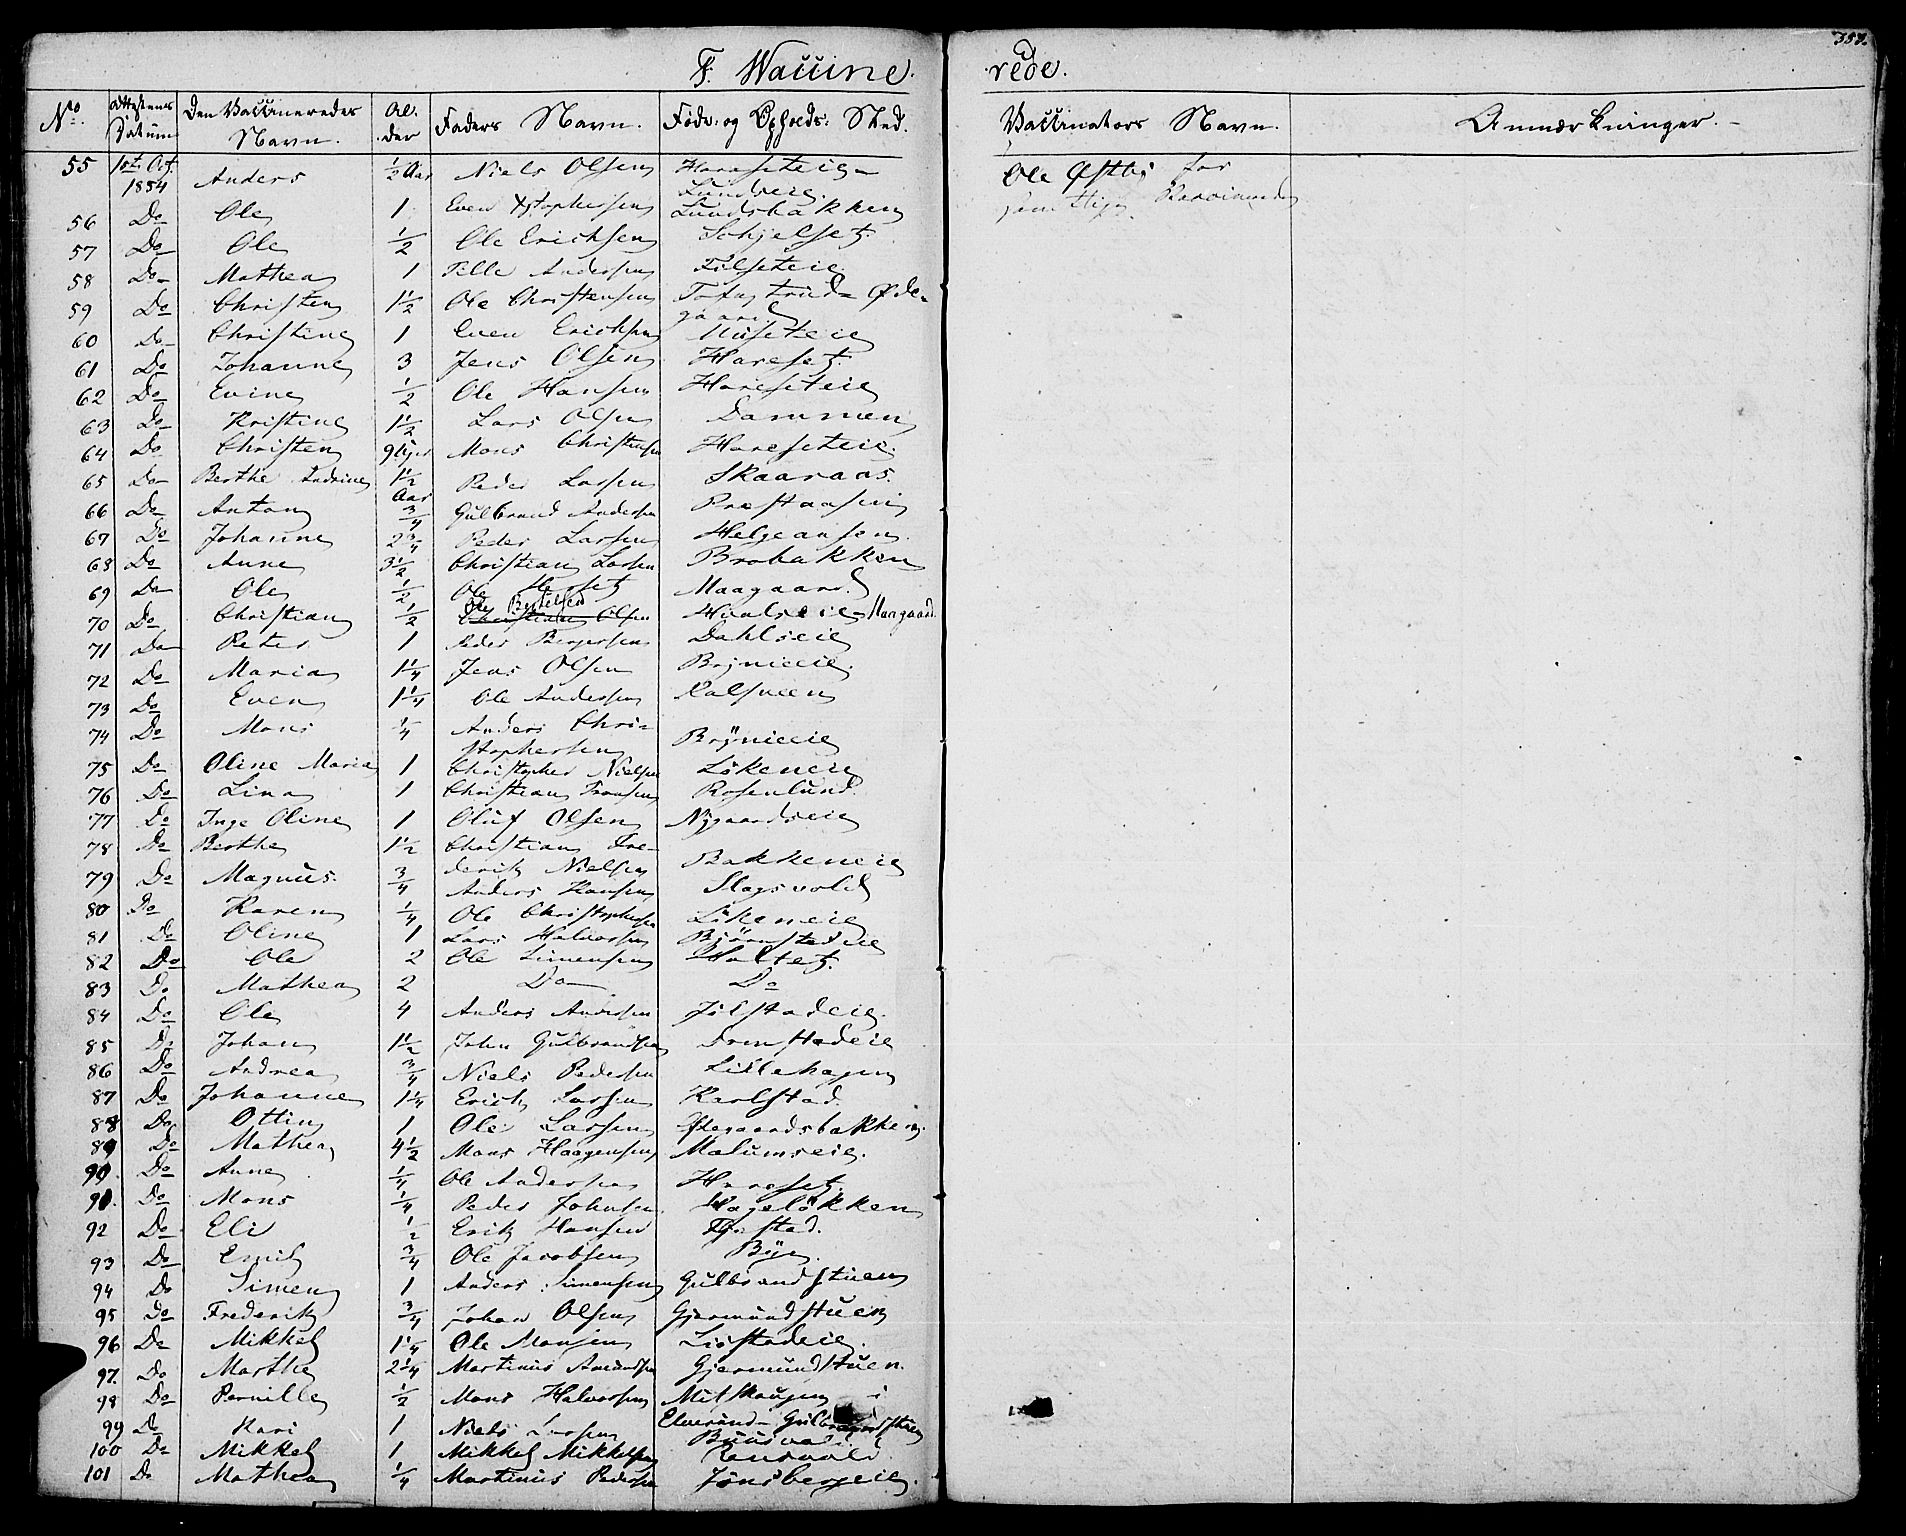 F. Waccine. rede.
357.
No. Attestens Datum Den Vaccineredes Navn. Al. der Faders Navn. Føde: og Opholds: Sted. Vaccinators Navn. Anmærkninger.
55 1st Oct. 1854 Anders ½ Aar Niels Olsen Haraseteie Lundbeie. Ole Østby for
56 Do Ole 1 Even Xstophersen Lundsbakken
57 Do Ole ½ Ole Erichsen Schjelset.
58 Do Mathea 1 Tille Andersen Filseteie
59 Do Christen 1½ Ole Christensen Tofastrud Øde-
gaard.
60 Do Christine 1 Even Erichsen Huseteie
61 Do Johanne 3 Jens Olsen Hareset.
62 Do Evine ½ Ole Hansen Hareseteie
63 Do Kristine 1½ Lars Olsen Dammen
64 Do Christen 9 Uger Mons Christensen Hareseteie.
65 Do Berthe Andrine 1½ Aar Peder Larsen Skaaraas.
66 Do Anton ¾ Gulbrand Andersen Prestaasen
67 Do Johanne 2¾ Peder Larsen Helgeansen.
68 Do Anne 3½ Christian Larsen Brobakken
69 Do Ole ½ Ole Maagaard.
70 Do Christian ½ Ole Bertelsen Christian Olsen Hvalseie Maagaard.
71 Do Peter 1 Peder Bergersen Dahlseie
72 Do Maria 1¼ Jens Olsen Brynieie.
73 Do Even 1¼ Ole Andersen Kalsveen
74 Do Mons ¼ Anders Chri-
stophersen Brynieeie
75 Do Oline Maria 1 Christopher Nielsen Lökeneie
76 Do Lina 1 Christian Fransen Rosenlund.
77 Do Inge Oline 1 Oluf Olsen Nygaardseie
78 Do Berthe 1½ Christian Fre-
derik Nielsen Bakkeneie
79 Do Magnus. ¾ Anders Hansen Slagsvold
80 Do Karen ¼ Ole Christophersen Lökeneie
81 Do Oline 1 Lars Halvorsen Björnstadeie
82 Do Ole 2 Ole Simensen Holtet.
83 Do Mathea 2 Do Do
84 Do Ole 4 Anders Andersen Jölstadeie.
85 Do Johan 1½ John Gulbrandsen Drmstadeie
86 Do Andrea ¾ Niels Pedersen Lillehagen
87 Do Johanne 1¼ Erich Larsen Karlstad.
88 Do Ottin 1 Ole Larsen Østgaardsbakken.
89 Do Mathea 4½ Mons Haagensen Malumseie.
90. Do Anne ¼ Ole Andersen Hareset.
91. Do Mons ¼ Peder Johnsen Hagelökken
92 Do Eli ½ Erik Hansen
93 Do Emil ¾ Ole Jacobsen Bye.
94 Do Simen 1 Anders Simensen Gulbrandstuen
95 Do Frederik ¾ Johan Olsen Gjermundstuen
96 Do Mikkel 1¼ Ole Monsen Liöstadeie
97. Do Marthe 2¼ Martinus Amundsen Gjermundstuen.
98 Do Pernille ½ Mons Halvorsen Mitskaugen i
99 Do Kari 1 Niels Larsen Elverund- Gulbrandstuen
100 Do Mikkel 1 Mikkel Mikkelsen
101 Do Mathea ¼ Martinus Pedersen Jönsbergeie.